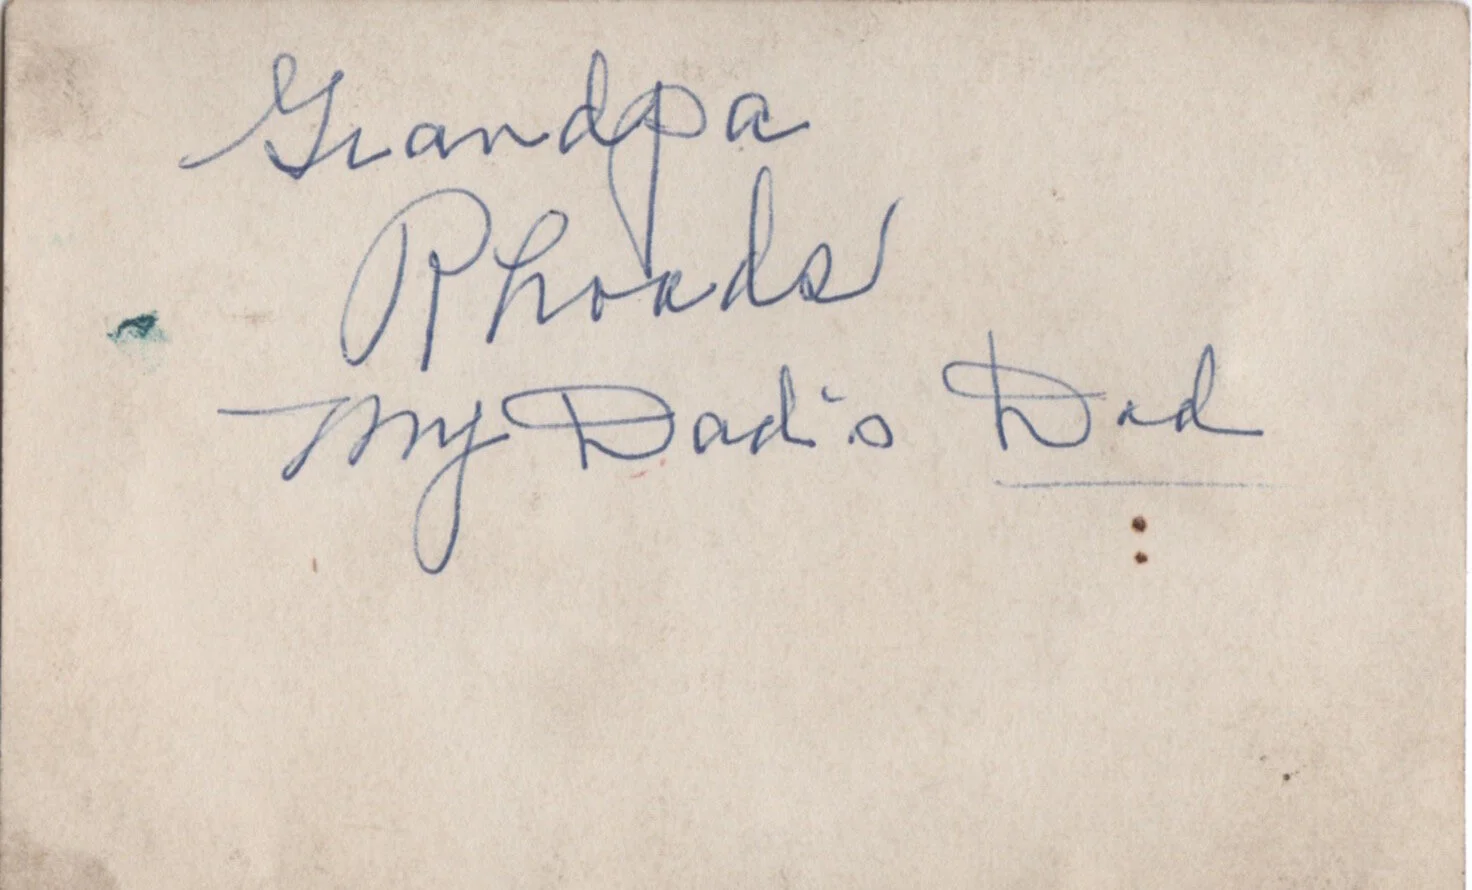 Grandpa
Rhoads
My Dad's Dad